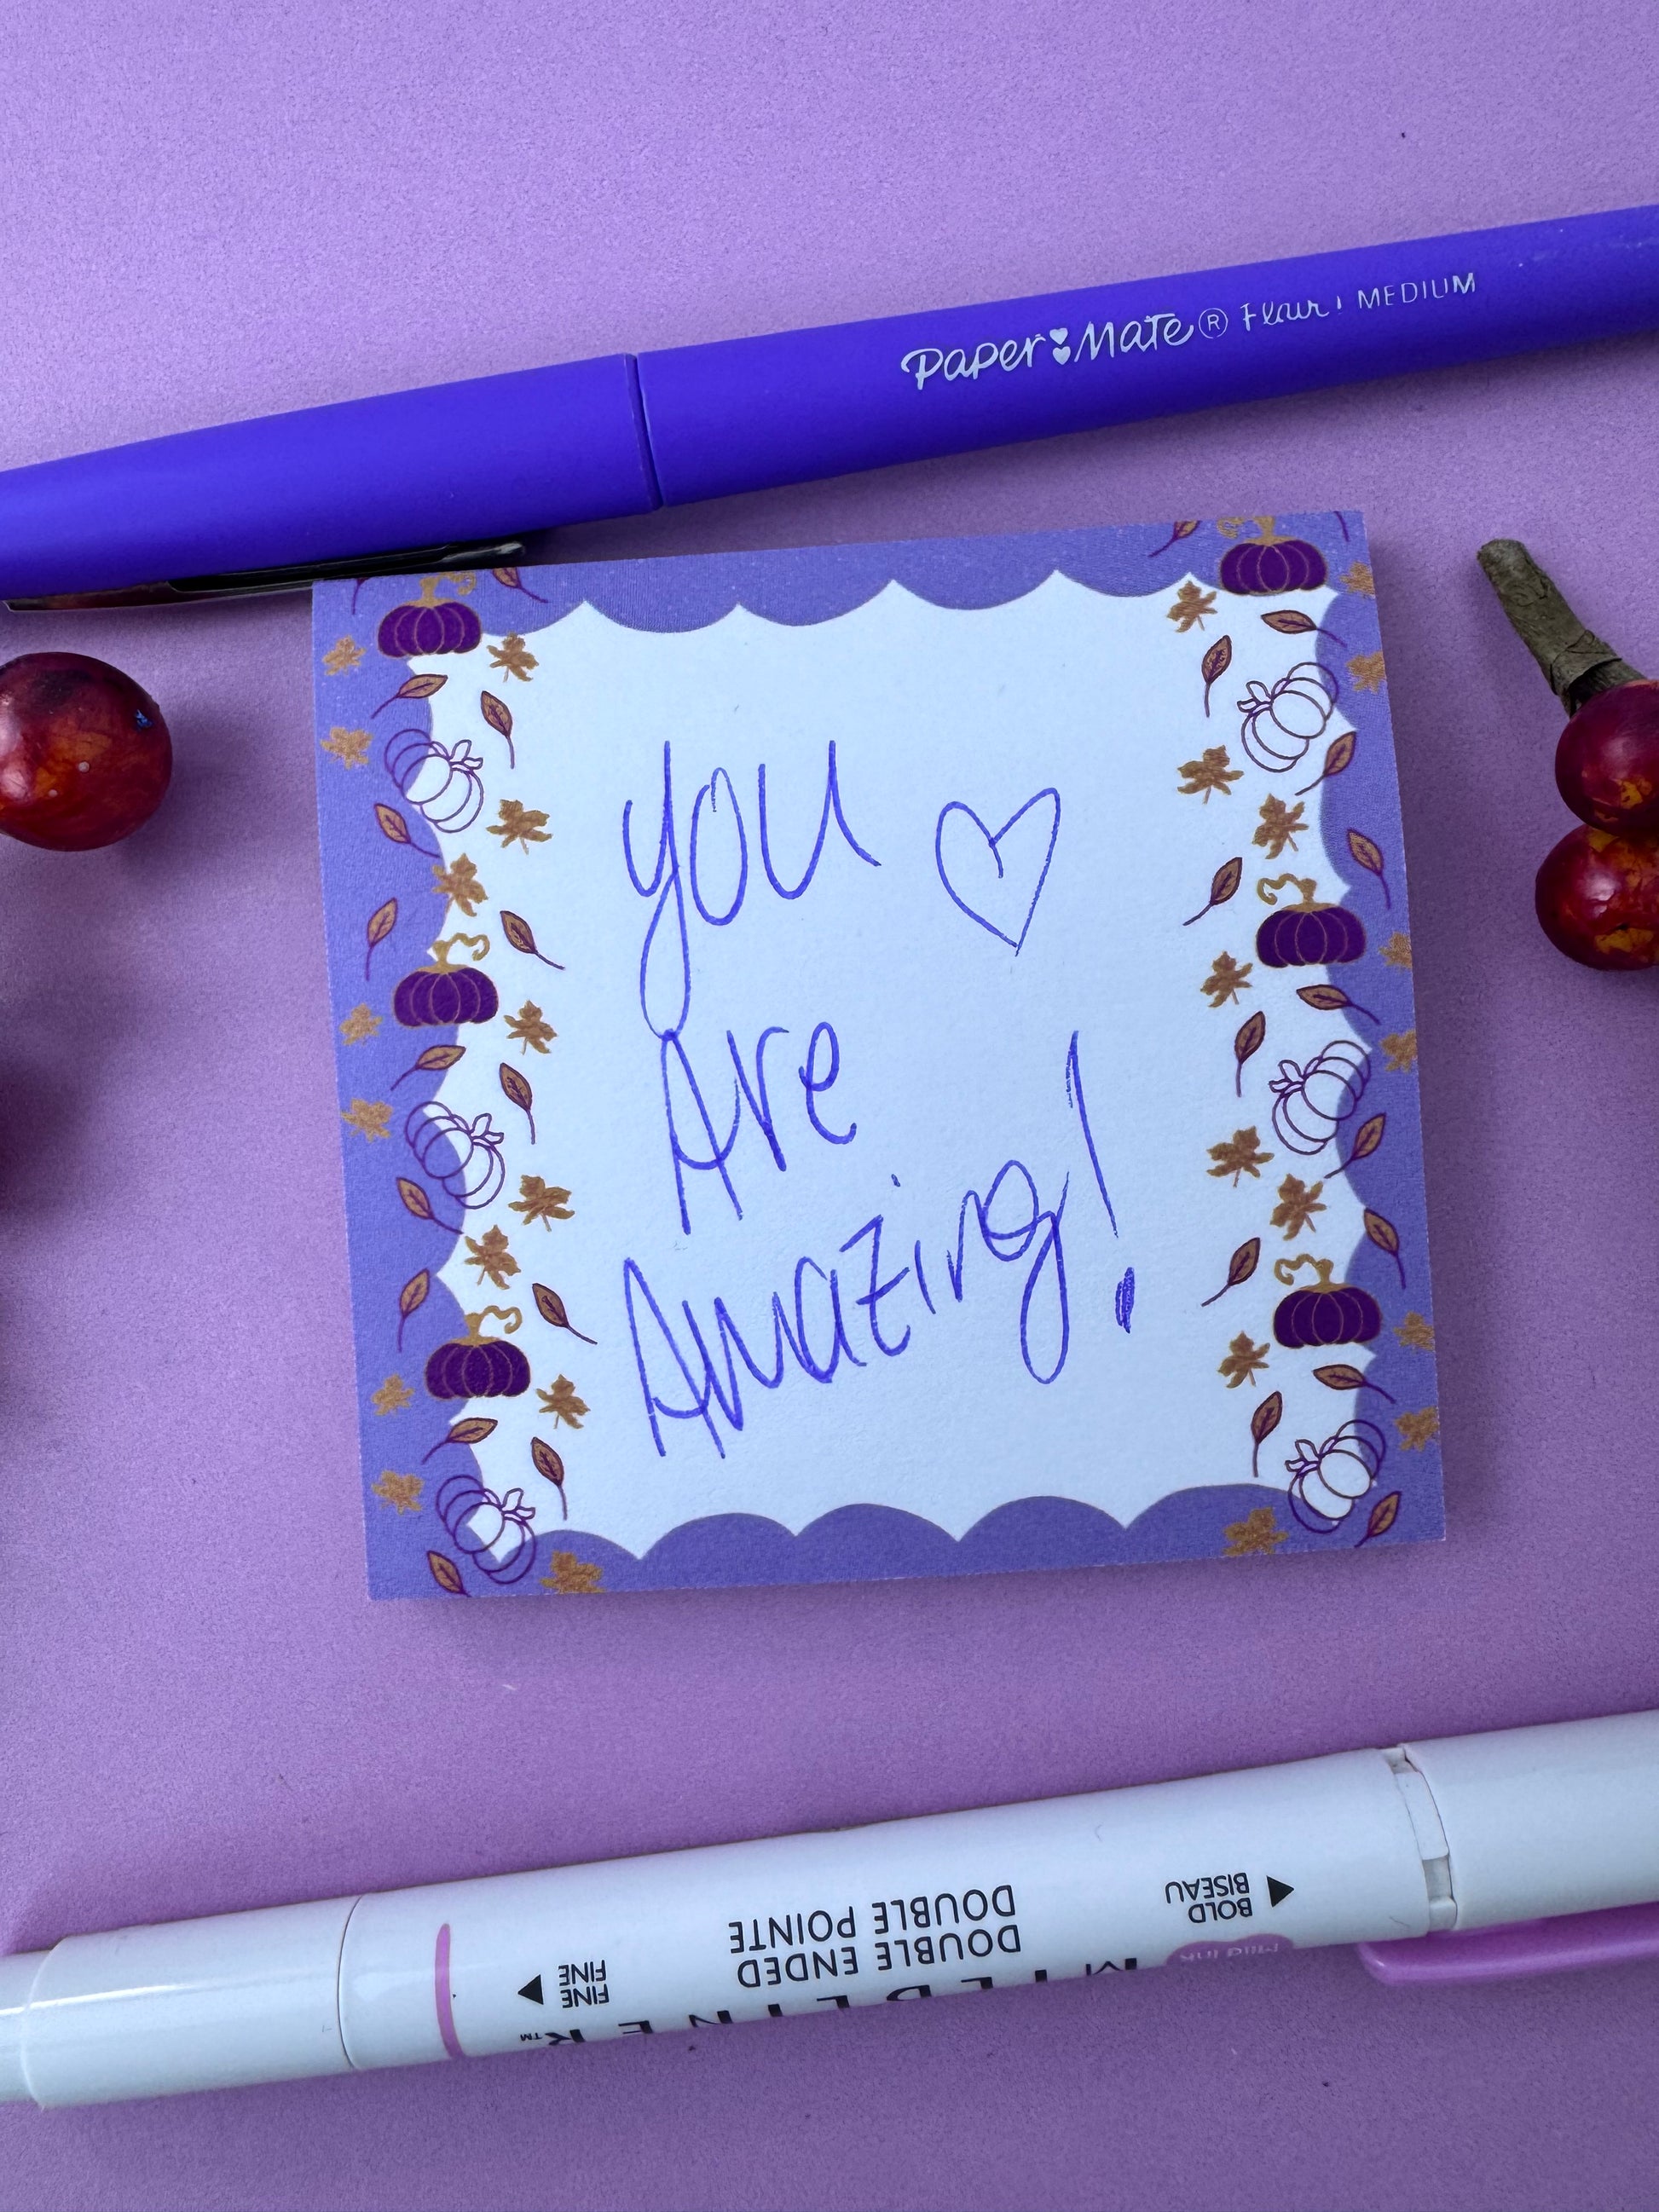 Paper Mate® Flair! MEDIUM
you
Are
Amazing!
BOLD
BISEAU
DOUBLE ENDED
DOUBLE POINTE
FINE
FINE
Mild Ink
MILDLINER™